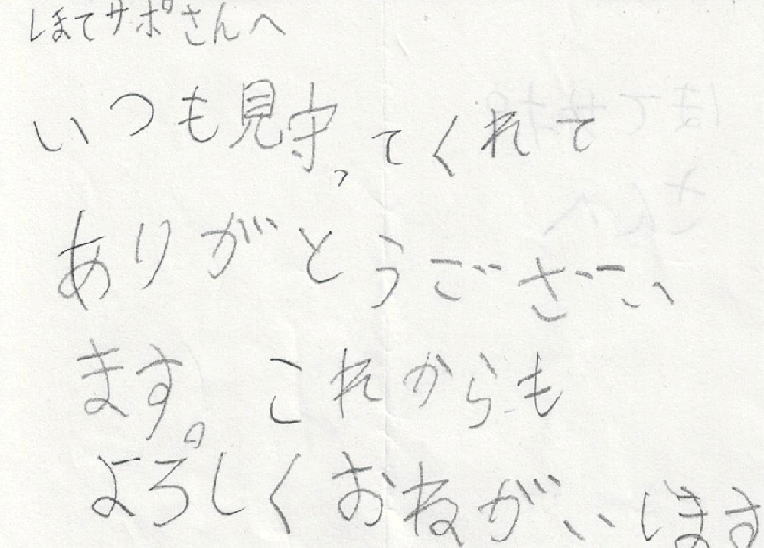 ほてサポさんへ
いつも見守ってくれて
ありがとうござい
ます。これからも
よろしくおねがいします